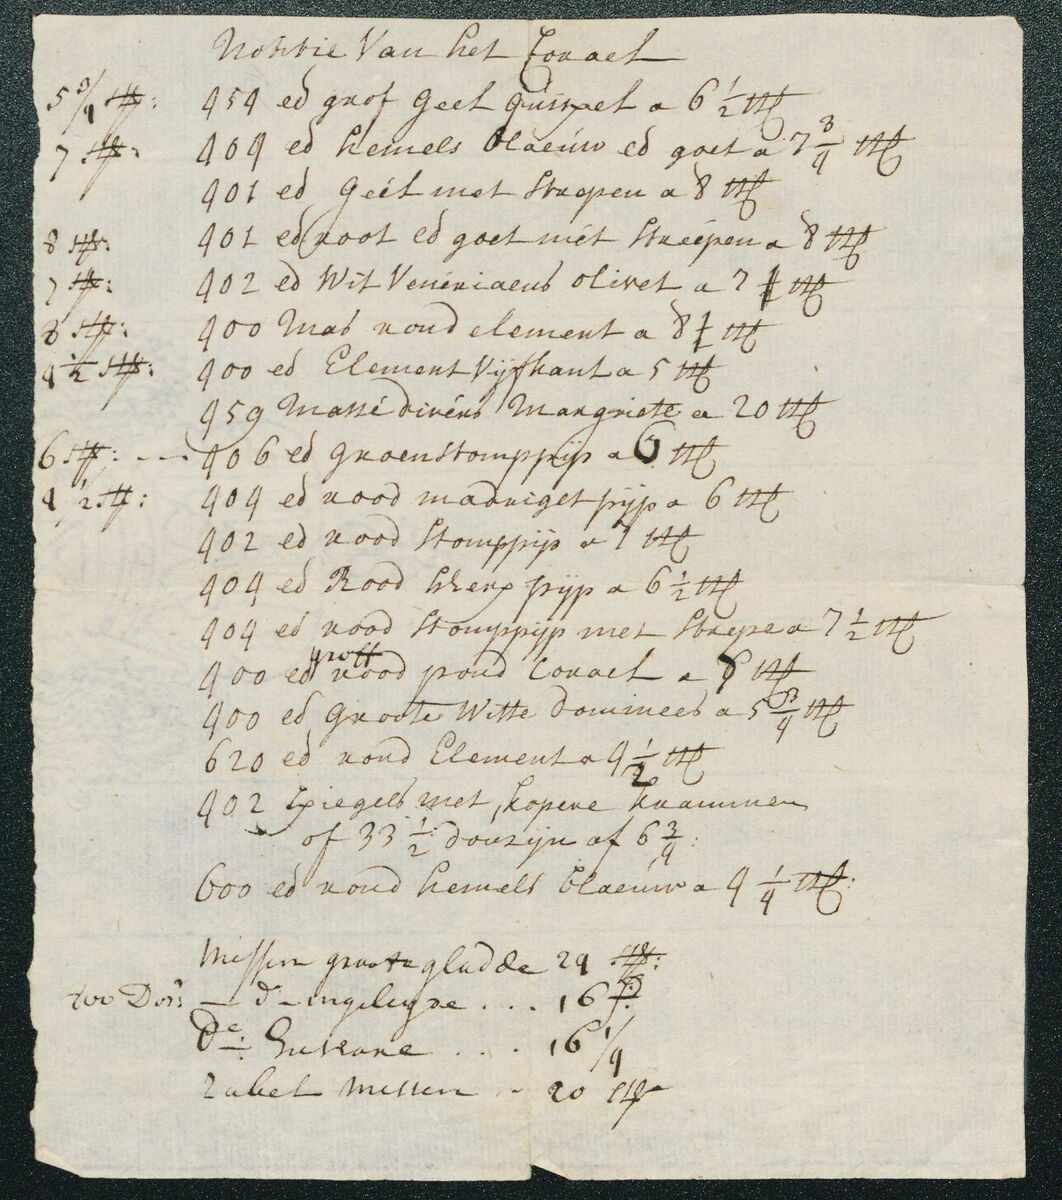 Notitie Van het Corael
5 3/4 st: 454 ed grof Geel a 6 1/2 st
7 st: 404 ed hemels blaeuw ed goet a 7 3/4 st
401 ed Geel met Strepen a 8 st
8 st: 401 ed root ed goet met Streepen a 8 st
7 st: 402 ed Wit Veneriaens olivet a 7 st
8 st: 400 Mas rond element a 8 st
4 1/2 st: 400 ed Element Vijfkant a 5 st
459 Masse divers Margriete a 20 st
6 st: 406 ed groen Stomppijp a 6 st
4 1/2 st: 404 ed rood madrigetpijp a 6 st
402 ed rood Stomppijp a 7 st
404 ed Rood pijp a 6 1/2 st
404 ed rood Stomppijp met Strepe a 7 1/2 st
groff
400 ed rood pond Corael a 6 st
400 ed Groote Witte dominees a 5 3/4 st
620 ed rond Element a 4 1/2 st
402 Spiegels met kopere krammen
of 33 1/2 douzijn af 6 3/4:
600 ed rond hemels blaeuw a 4 1/4 st:
Messen groote gladde 24 st:
100 Dos - do - . . . 16
de: . . . 16 1/4
Messen - 20 st